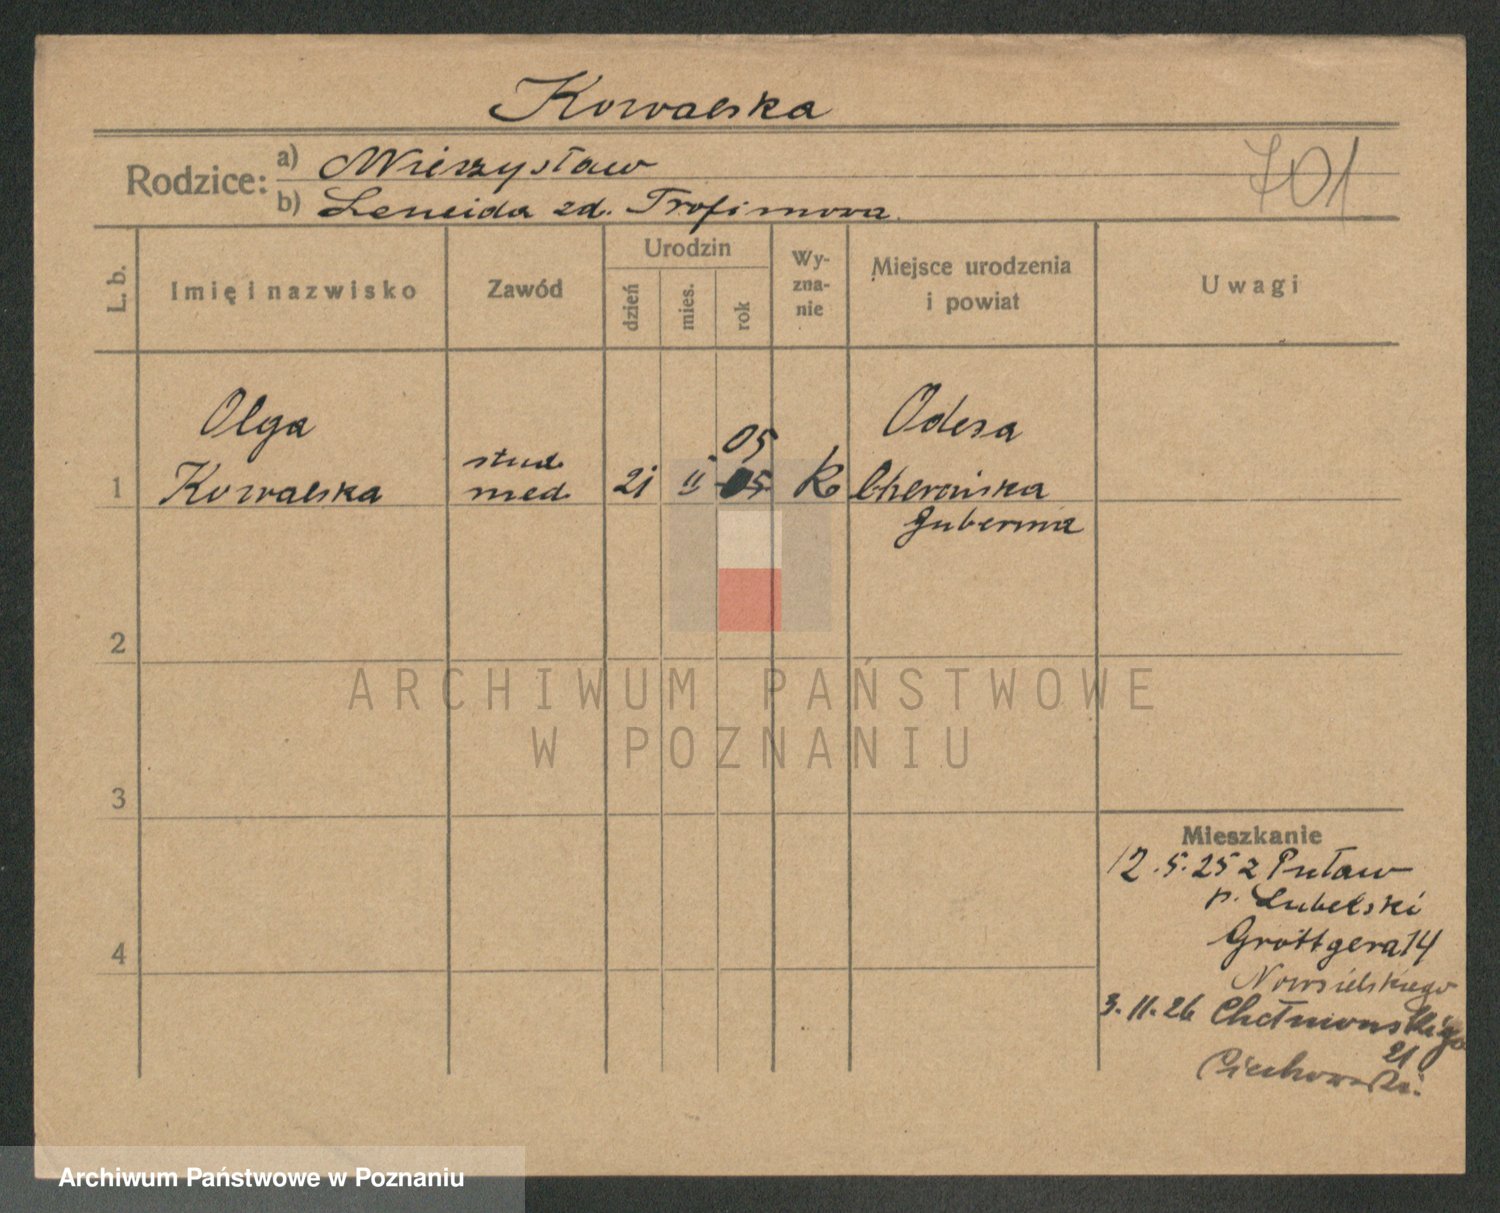 Kowalska
Rodzice: a) Mieczysław
b) Leneida zd. Trofimowa
701
L. b.
Imię i nazwisko
Zawód
Urodzin
dzień
mies.
rok
Wy-
zna-
nie
Miejsce urodzenia
i powiat
Uwagi
Olga
Kowalska
stud
med
21
II
05
05
k
Odesa
Cherońska
gubernia
1
2
3
4
Mieszkanie
12.5.25 z Puław
p. Lubelski
Grottgera 14
Nowsielskiego
3.11.26 Chełmońskiego
21
Ciechowski.
ARCHIWUM PAŃSTWOWE
W POZNANIU
Archiwum Państwowe w Poznaniu